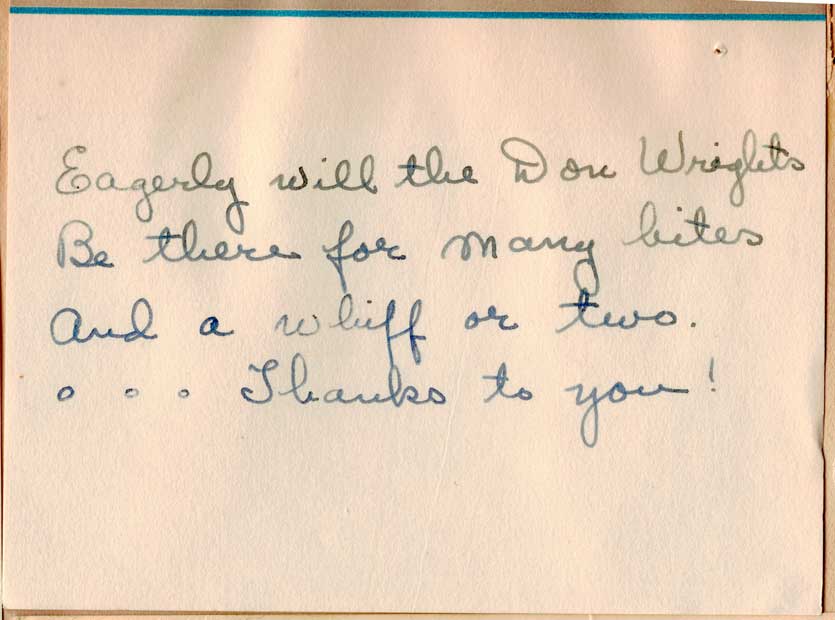 Eagerly will the Don Wrights
Be there for many bites
And a whiff or two.
. . . Thanks to you!